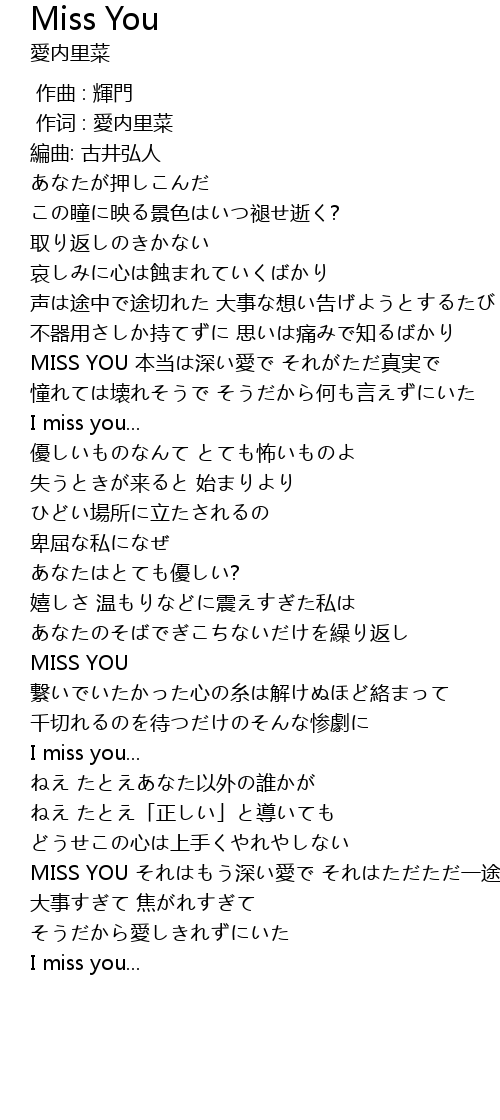 Miss You
愛内里菜
作曲 : 輝門
作词 : 愛内里菜
編曲: 古井弘人
あなたが押しこんだ
この瞳に映る景色はいつ褪せ逝く?
取り返しのきかない
哀しみに心は蝕まれていくばかり
声は途中で途切れた 大事な想い告げようとするたび
不器用さしか持てずに 思いは痛みで知るばかり
MISS YOU 本当は深い愛で それがただ真実で
憧れては壊れそうで そうだから何も言えずにいた
I miss you...
優しいものなんて とても怖いものよ
失うときが来ると 始まりより
ひどい場所に立たされるの
卑屈な私になぜ
あなたはとても優しい?
嬉しさ 温もりなどに震えすぎた私は
あなたのそばでぎこちないだけを繰り返し
MISS YOU
繋いでいたかった心の糸は解けぬほど絡まって
千切れるのを待つだけのそんな惨劇に
I miss you...
ねえ たとえあなた以外の誰かが
ねえ たとえ「正しい」と導いても
どうせこの心は上手くやれやしない
MISS YOU それはもう深い愛で それはただただ一途
大事すぎて 焦がれすぎて
そうだから愛しきれずにいた
I miss you...